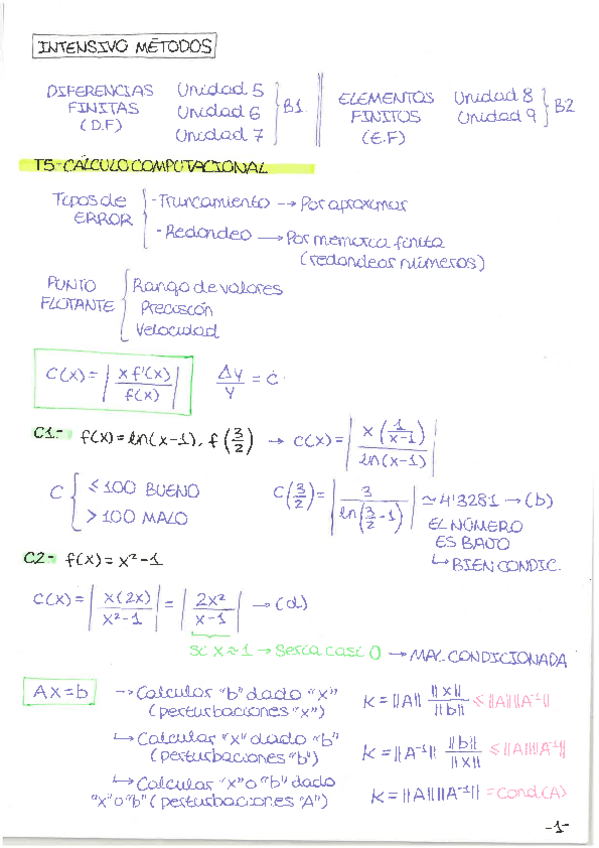 INTENSIVO MÉTODOS
DIFERENCIAS FINITAS (D.F) { Unidad 5 Unidad 6 Unidad 7 } B1
ELEMENTOS FINITOS (E.F) Unidad 8 Unidad 9 } B2
T5-CÁLCULO COMPUTACIONAL
Tipos de ERROR { - Truncamiento --> Por aproximar
- Redondeo → Por memoria finita
(redondear números)
PUNTO FLOTANTE { Rango de valores
Precisión
Velocidad
C(x) = | x f'(x) / f(x) | Δy / y = C
C1.- f(x) = ln(x-1), f(3/2) → C(x) = | x (1/(x-1)) / ln(x-1) |
C { ≤ 100 BUENO
> 100 MALO
C(3/2) = | 3 / ln(3/2 - 1) | ≃ 4'3281 → (b)
EL NÚMERO
ES BAJO
↳ BIEN CONDIC.
C2- f(x) = x² - 1
C(x) = | x(2x) / x² - 1 | = | 2x² / x - 1 | → (d)
si x ≈ 1 → Serca casi 0 → MAL CONDICIONADA
Ax = b → Calcular "b" dado "x"
(perturbaciones "x")
K = ||A|| ||x|| / ||b|| ≤ ||A|| ||A⁻¹||
↳ Calcular "x" dado "b"
(perturbaciones "b")
K = ||A⁻¹|| ||b|| / ||x|| ≤ ||A|| ||A⁻¹||
↳ Calcular "x" o "b" dado
"x" o "b" (perturbaciones "A")
K = ||A|| ||A⁻¹|| = Cond.(A)
-1-